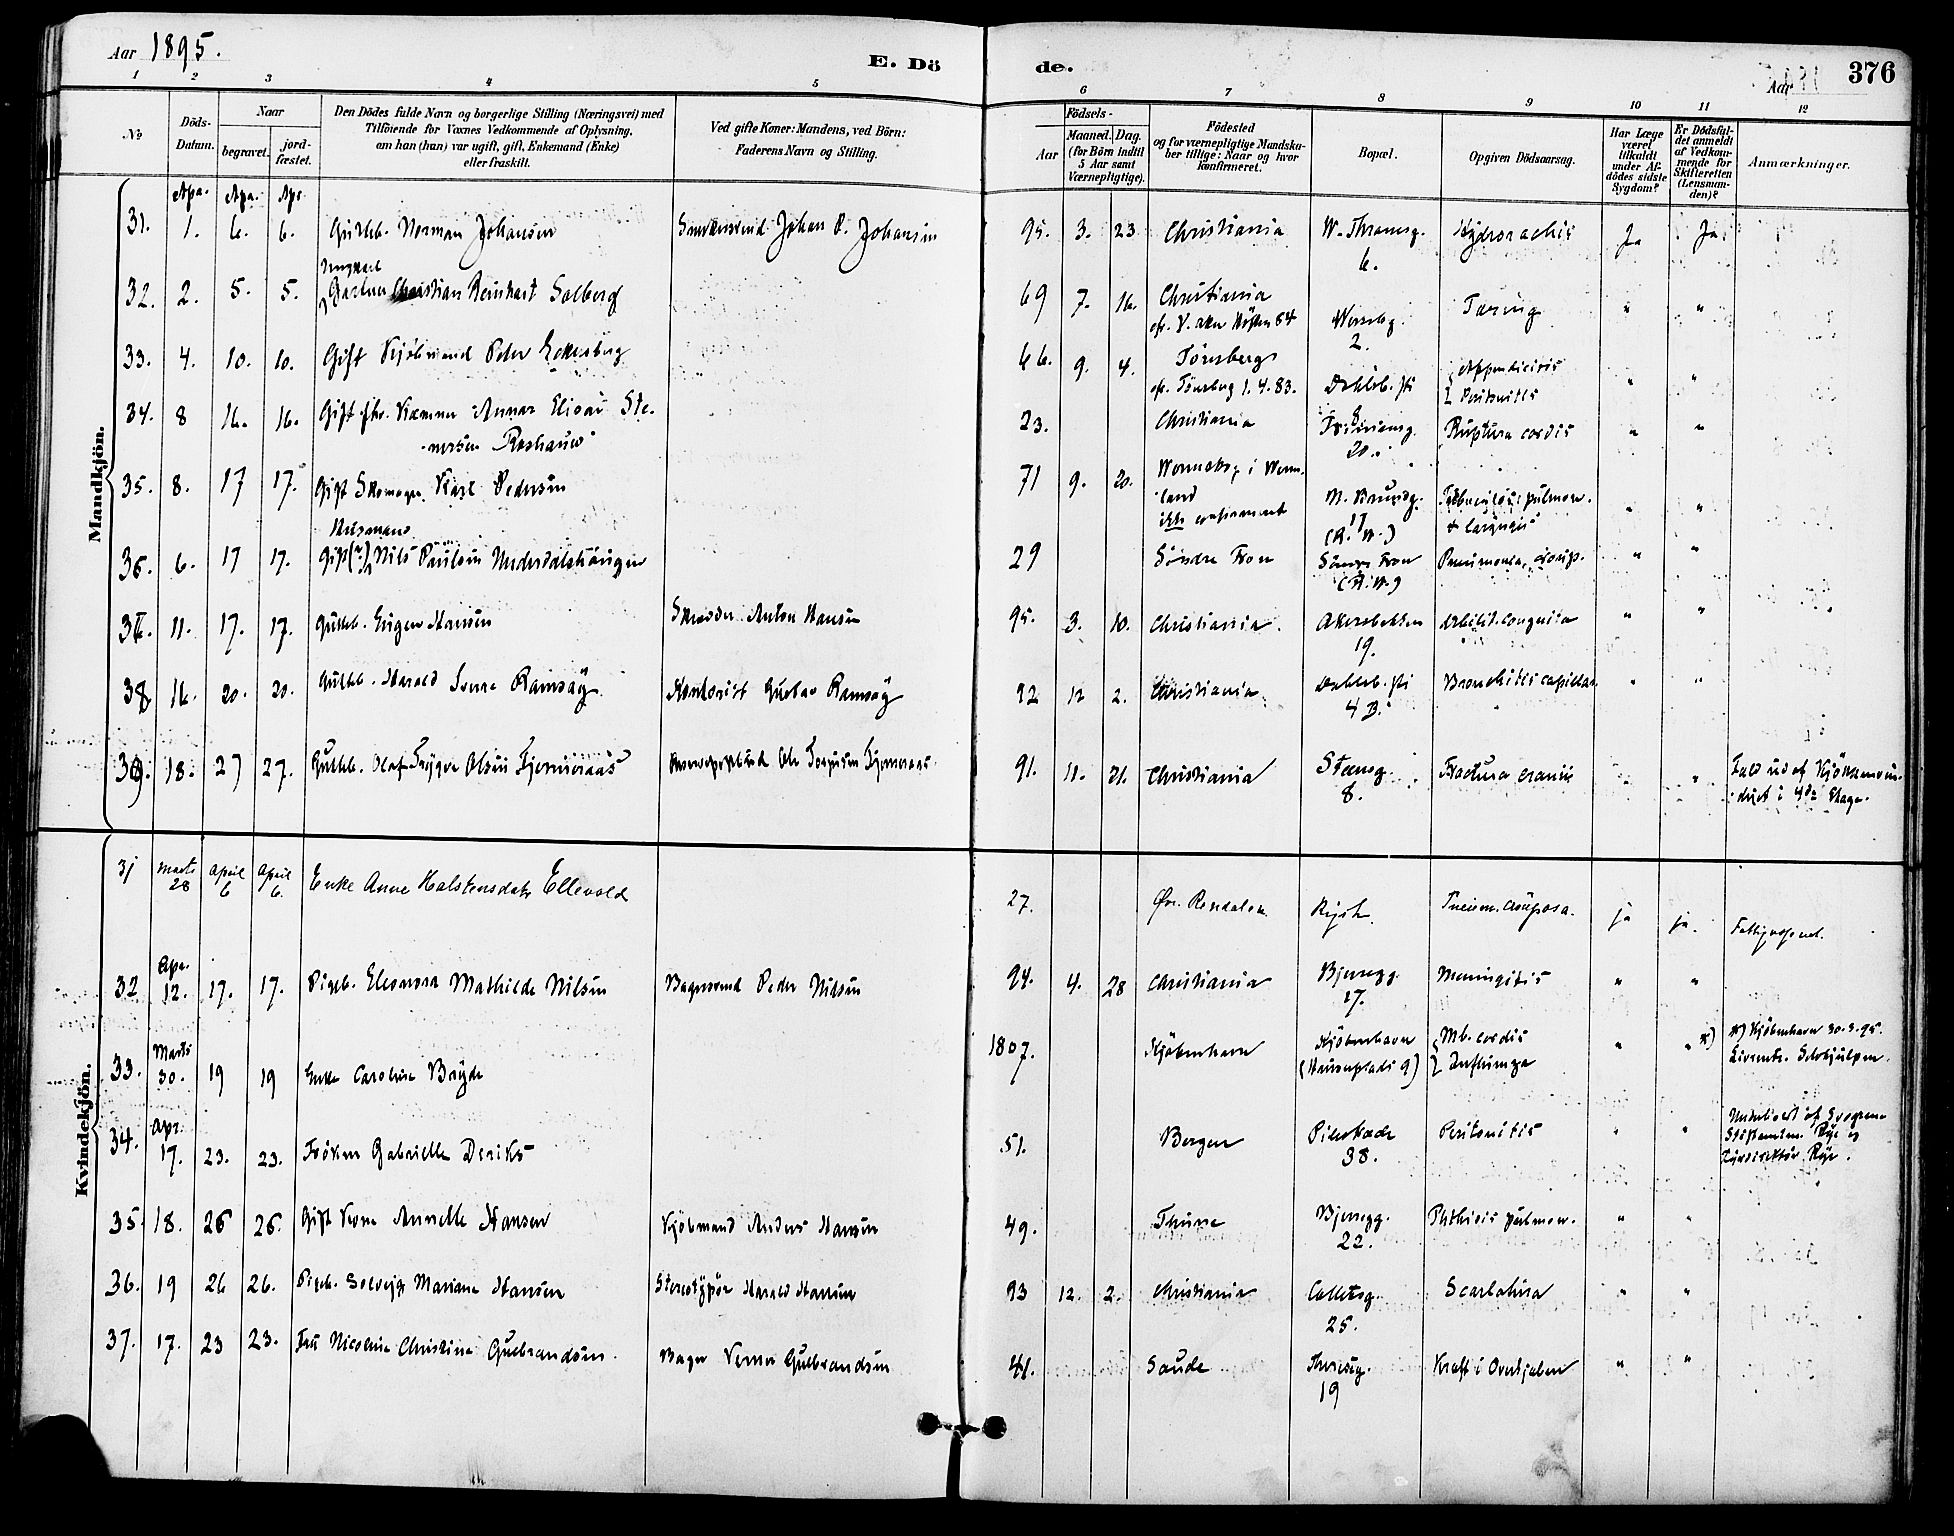 Aar 1895.
E. Dö
de.
Aar
376
1 2 3 4 5 6 7 8 9 10 11 12
No
Döds-
Datum.
Naar
begravet.
jord-
fæstet.
Den Dödes fulde Navn og borgerlige Stilling (Næringsvei) med
Tilföiende for Voxnes Vedkommende af Oplysning,
om han (hun) var ugift, gift, Enkemand (Enke)
eller fraskilt.
Ved gifte Koner: Mandens, ved Börn:
Faderens Navn og Stilling.
Födsels-
Aar
Maaned. Dag.
(for Börn indtil
5 Aar samt
Værnepligtige).
Födested
og for værnepligtige Mandska-
ber tillige: Naar og hvor
konfirmeret.
Bopæl.
Opgiven Dödsaarsag.
Har Læge
været
tilkaldt
under Af-
dödes sidste
Sygdom?
Er Dödsfal-
det anmeldt
af Vedkom-
mende for
Skifteretten
(Lensman-
den)?
Anmærkninger.
Mandkjön.
Apr. Apr. Apr.
31. 1. 6. 6. Gutteb. Norman Johansen Johan Johansen 95. 3. 23 Christiania W. Thranesg. Hydrorachis Ja Ja
6.
Ungkarl
32. 2. 5. 5. Gartner Christian Reinhart Solberg 69 7. 16. Christiania Tæring " "
2.
33. 4. 10. 10. Gift Kjöbmand Peter Eckersberg 66. 9. 4. Tönsberg Appendicitis " "
Tönsberg 1. 4. 83. Peritonitis
34. 8 16. 16. Gift Annar Elisar Ste- 23. Christiania Ruptura cordis " "
nersen Roshauw 20.
35. 8. 17 17. Gift Skomager Karl Pedersen 71 9. 20. i Werm-
land 17 & laryngis " "
ikke confirmeret (R. H.)
Husmand
36. 6. 17 17. Gift Nils Paulsen 29 Söndre Fron Söndre Fron Pneumonia croup. " "
(R. H.)
37. 11. 17. 17. Gutteb. Eugen Hansen Skrædder Anton Hansen 95. 3. 10. Christiania. Akersbakken debilit. congenita " "
19.
38 16. 20. 20. Gutteb. Harald Sverre Ramsøy Kontorist Gustav Ramsøy 92 12 2. Christiania. Bronchitis capillar. " "
4 B.
39. 18. 27 27. Gutteb. Olaf Trygve Olsen Fjermeraas 91. 11. 21. Christiania Stensg. Fractura cranii " " Fald ud af Kjökkenvin-
8. duet i 4de Etage.
Kvindekjön.
31 Marts April April Enke Anne Halstensdatr Ellevold 27. Öv. Rendalen Rigsh. Pneum. crouposa. ja ja.
28 6 6.
Apr.
32 12. 17. 17. Pigeb. Eleonora Mathilde Nilsen Bagersvend Peder Nilsen 94. 4. 28 Christiania Bjerregg. Meningitis " "
17.
Marts
33. 30. 19 19 Enke Caroline Bryde 1807. Kjöbenhavn Kjöbenhavn Mb. cordis " " x) x) Kjöbenhavn 30.3.95.
(Havneplads 9) Influenza
Apr.
34. 17. 23. 23. Fröken Gabrielle Deriks 51. Bergen Pilestræde Peritonitis " "
38. Rye og
Rye.
35. 18. 26 26. Gift Kone Annette Hansen Kjöbmand Anders Hansen 49. Bjerregg. Phthisis pulmon. " "
22.
36. 19 26 26. Pigeb. Solveig Mariane Hansen Stereotypör Harald Hansen 93 12. 2. Christiania Colletsg. Scarlatina " "
25.
37. 17. 23 23. Fru Nicoline Christine Gulbrandsen Bager Verner Gulbrandsen 41. Saude Kræft i Overkjæben " "
19